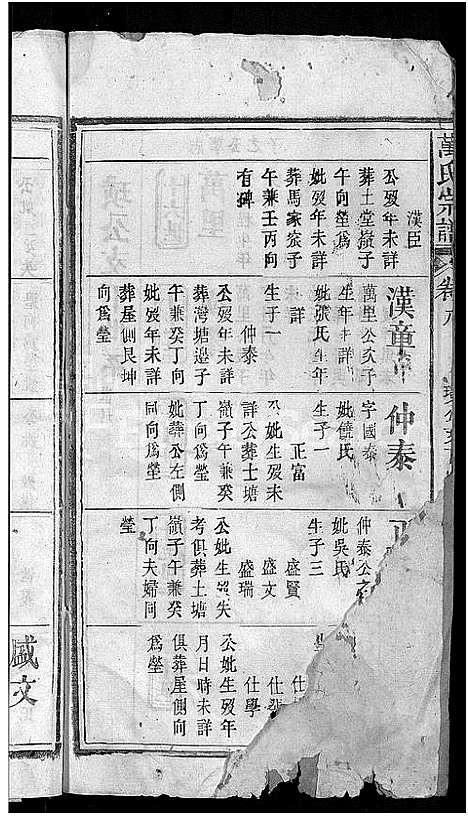 萬氏宗譜
卷
漢臣
公歿年未詳
葬土堂嶺子
午向塋爲
妣歿年未詳
葬馬家嶺子
午兼壬丙向
有碑
漢童
萬里公次子
生年未詳
妣張氏生年
未詳
生子一
仲泰
公歿年未詳
葬灣塘邉子
午兼癸丁向
妣歿年未詳
葬屋側艮坤
向爲塋
仲泰
字國泰
妣饒氏
生子一
正富
公妣生歿未
詳公葬土塘
嶺子午兼癸
丁向爲塋
妣葬公左側
同向爲塋
正
仲泰公
妣吳氏
生子三
盛賢
盛文
盛瑞
公妣生歿失
考俱葬土塘
嶺子午兼癸
丁向夫婦同
塋
仕
仕
仕學
公妣生歿年
月日時未詳
俱葬屋側向
爲塋
盛文